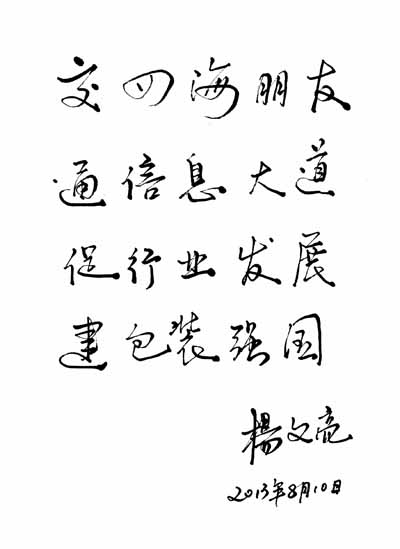 交四海朋友
通信息大道
促行业发展
建包装强国
楊文亮
2013年8月10日